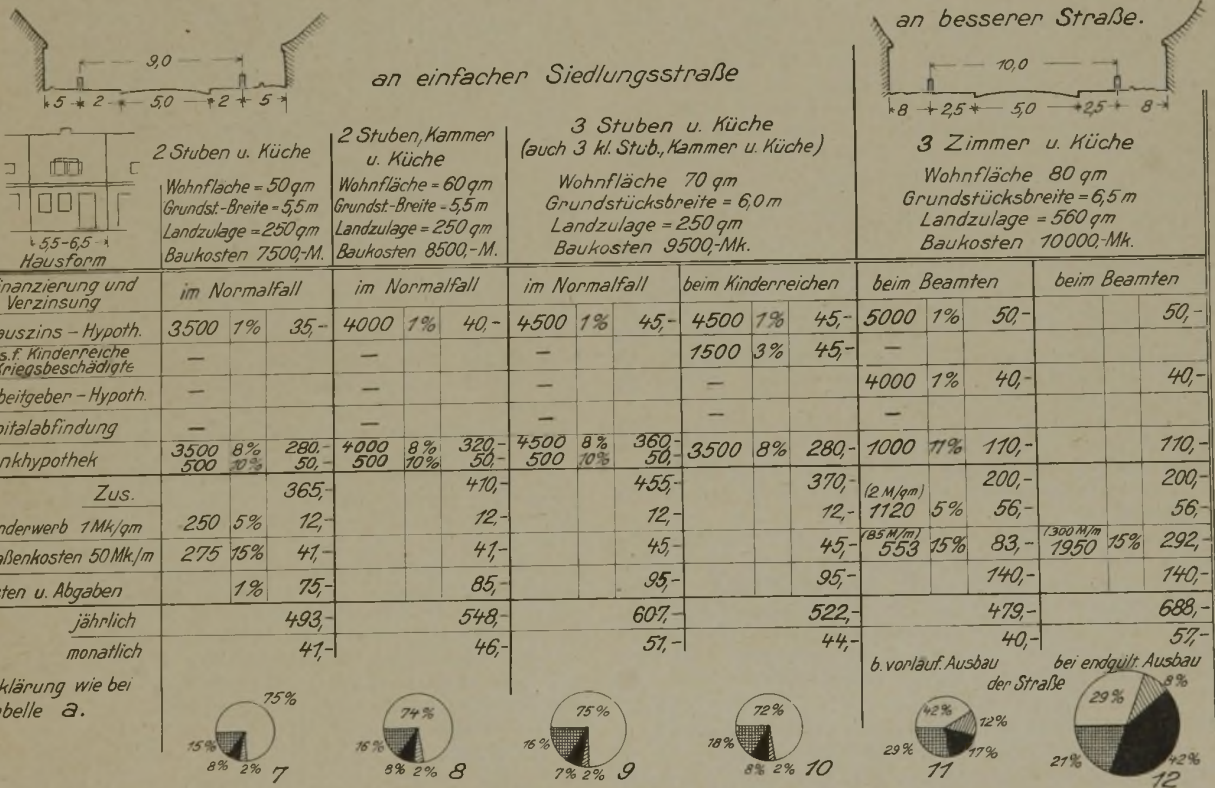 an besserer Straße.
9,0
an einfacher Siedlungsstraße
10,0
5 2 5,0 2 5
8 2,5 5,0 2,5 8
2 Stuben u. Küche
Wohnfläche = 50 qm
Grundst.-Breite = 5,5 m
Landzulage = 250 qm
Baukosten 7500,-M.
2 Stuben, Kammer
u. Küche
Wohnfläche = 60 qm
Grundst.-Breite = 5,5 m
Landzulage = 250 qm
Baukosten 8500,-M.
3 Stuben u. Küche
(auch 3 kl. Stub., Kammer u. Küche)
Wohnfläche 70 qm
Grundstücksbreite = 6,0 m
Landzulage = 250 qm
Baukosten 9500,-Mk.
3 Zimmer u. Küche
Wohnfläche 80 qm
Grundstücksbreite = 6,5 m
Landzulage = 560 qm
Baukosten 10000,-Mk.
5,5-6,5
Hausform
inanzierung und
Verzinsung
im Normalfall im Normalfall im Normalfall beim Kinderreichen beim Beamten beim Beamten
auszins - Hypoth. 3500 1% 35,- 4000 1% 40,- 4500 1% 45,- 4500 1% 45,- 5000 1% 50,- 50,-
s. f. Kinderreiche
Kriegsbeschädigte
— — — 1500 3% 45,- —
beitgeber - Hypoth. — — — — 4000 1% 40,- 40,-
pitalabfindung — — — — —
nkhypothek 3500 8% 280,- 4000 8% 320,- 4500 8% 360,- 3500 8% 280,- 1000 11% 110,- 110,-
500 10% 50,- 500 10% 50,- 500 10% 50,-
Zus. 365,- 410,- 455,- 370,- 200,- 200,-
(2 M/qm)
nderwerb 1 Mk/qm 250 5% 12,- 12,- 12,- 12,- 1120 5% 56,- 56,-
(85 M/m) (300 M/m)
aßenkosten 50 Mk/m 275 15% 41,- 41,- 45,- 45,- 553 15% 83,- 1950 15% 292,-
sten u. Abgaben 1% 75,- 85,- 95,- 95,- 140,- 140,-
jährlich 493,- 548,- 607,- 522,- 479,- 688,-
monatlich 41,- 46,- 51,- 44,- 40,- 57,-
klärung wie bei
belle a.
b. vorläuf. Ausbau bei endgült. Ausbau
der Straße
75% 15% 8% 2% 7
74% 16% 8% 2% 8
75% 16% 7% 2% 9
72% 18% 8% 2% 10
42% 12% 29% 17% 11
29% 8% 21% 42% 12